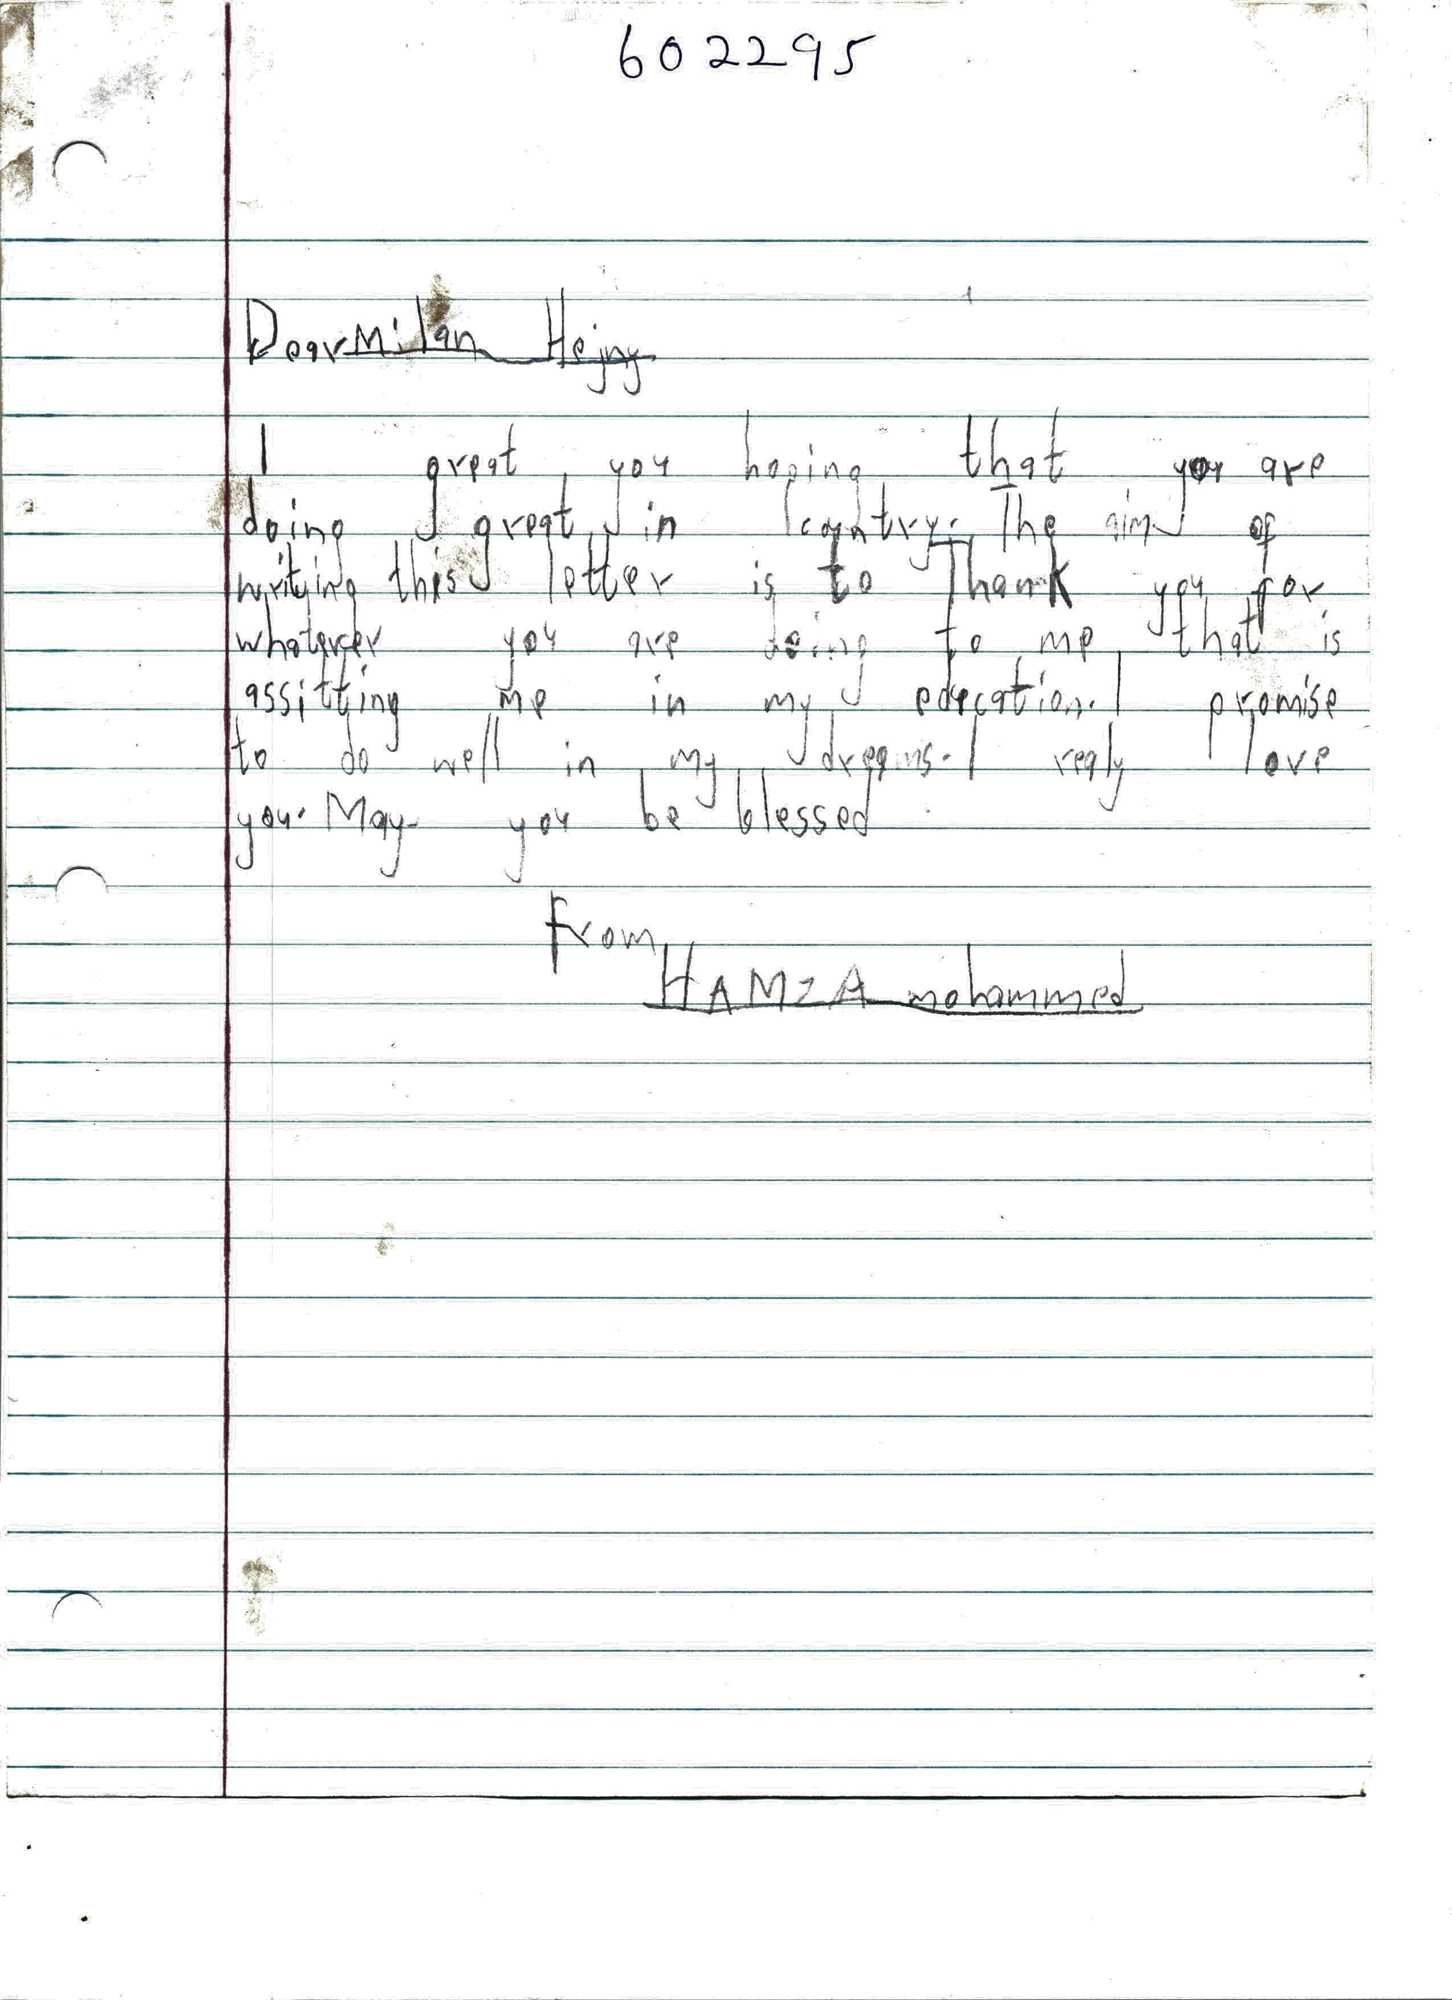 602295
Dear Milan Hejny
I great you hoping that you are
doing great in country. The aim of
writying this letter is to Thank you for
whatever you are doing to me that is
assitting me in my education. I promise
to do well in my dreams. I realy love
you. May you be blessed
From
HAMZA mohammed